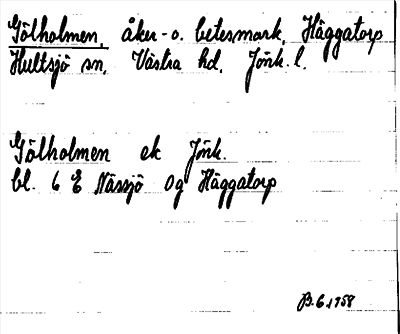 Gölholmen, åker- o. betesmark, Häggatorp
Hultsjö sn, Västra hd, Jönk. l.
Gölholmen ek Jönk.
bl. 6 E Nässjö Og Häggatorp
B.E. 1958